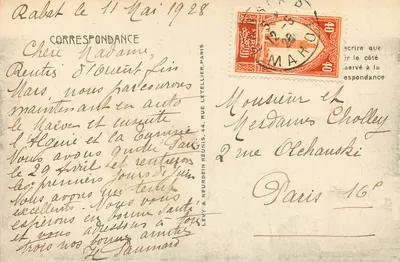 Rabat le 11 Mai 1928
CORRESPONDANCE
Chère Madame,
Rentrés d'Orient fin
Mars, nous parcourons
maintenant en auto
le Maroc et ensuite
l'Algérie et la Tunisie
Nous avons quitté Paris
le 29 Avril et rentrerons
les premiers jours de Juin
Nous avons un temps
excellent. Nous vous
espérons en bonne santé
et vous adressons à tous
trois nos bonnes amitiés
LEVY & NEURDEIN REUNIS, 44, RUE LETELLIER, PARIS
MAROC
40 40
Monsieur et
Mesdames Cholley
2 rue
Paris 16e
crire
r le côté
servé à la
espondance